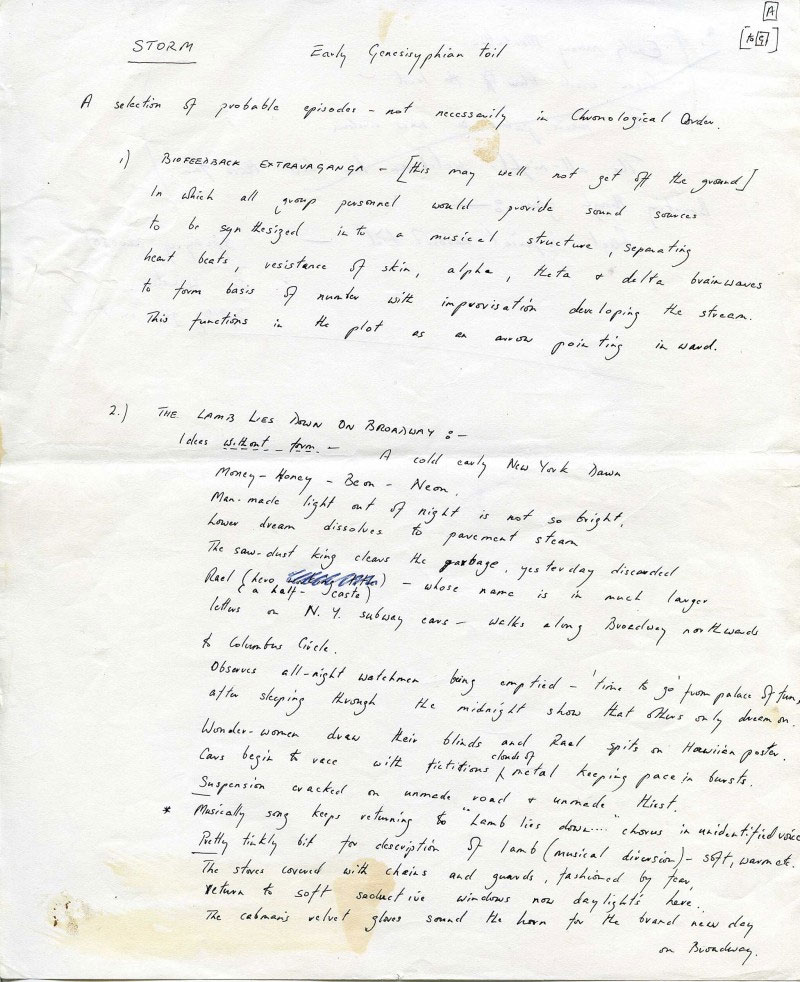 A
[to G]
STORM Early Genesisyphian toil
A selection of probable episodes - not necessarily in Chronological Order.
1) BIOFEEDBACK EXTRAVAGANGA - [this may well not get off the ground]
In which all group personnel would provide sound sources
to be synthesized into a musical structure, separating
heart beats, resistance of skin, alpha, theta & delta brainwaves
to form basis of number with improvisation developing the stream.
This functions in the plot as an arrow pointing inward.
2.) THE LAMB LIES DOWN ON BROADWAY :-
Ideas without form - A cold early New York Dawn
Money - Honey - Beon - Neon.
Man-made light out of night is not so bright,
Lower dream dissolves to pavement steam
The saw-dust king clears the garbage, yesterday discarded
Rael (hero) - whose name is in much larger
(a half-caste)
letters on N.Y. subway cars - walks along Broadway northwards
to Columbus Circle.
Observes all-night watchmen being emptied - 'time to go' from palace of fun,
after sleeping through the midnight show that others only dream on.
Wonder-women draw their blinds and Rael spits on Hawiian poster.
Cars begin to race with fictitious clouds of metal keeping pace in bursts.
Suspension cracked on unmade road & unmade thiest.
* Musically song keeps returning to "Lamb lies down...." chorus in unidentified voice
Pretty tinkly bit for description of lamb (musical diversion) - soft, warm etc.
The stores covered with chains and guards, fashioned by fear,
return to soft seductive windows now daylight's here.
The cabman's velvet gloves sound the horn for the brand new day
on Broadway.